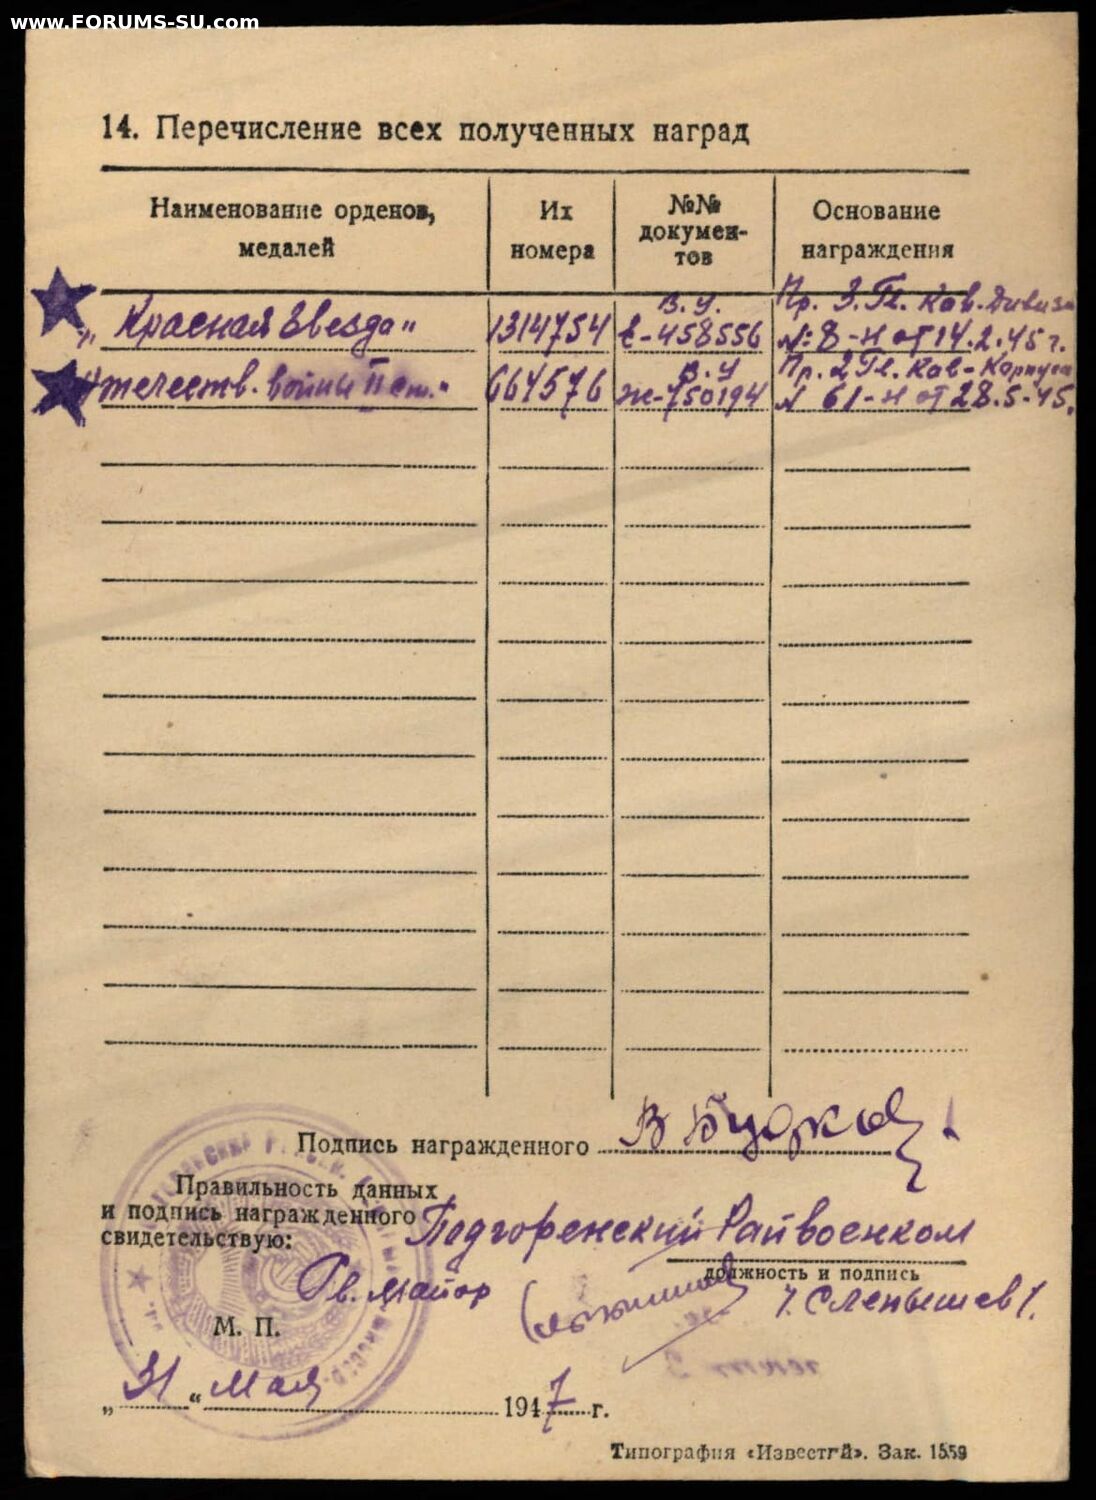 www.FORUMS-SU.com
14. Перечисление всех полученных наград
Наименование орденов, медалей
Их номера
№№ докумен-тов
Основание награждения
„Красная Звезда"
1314754
В.У. Е-458556
Пр. 3. Гв. Кав. Дивизи №: 8-н от 14.2.45 г.
Отечеств. войны II ст."
664576
В.У Ж-750194
Пр. 2 Гв. Кав-Корпуса N 61-н от 28.5-45.
Подпись награжденного
Правильность данных
и подпись награжденного Подгоренский Райвоенком
свидетельствую:
должность и подпись
Гв. майор /. Сленышев /.
М. П.
„31" Мая 1947 г.
Типография «Известий». Зак. 1559